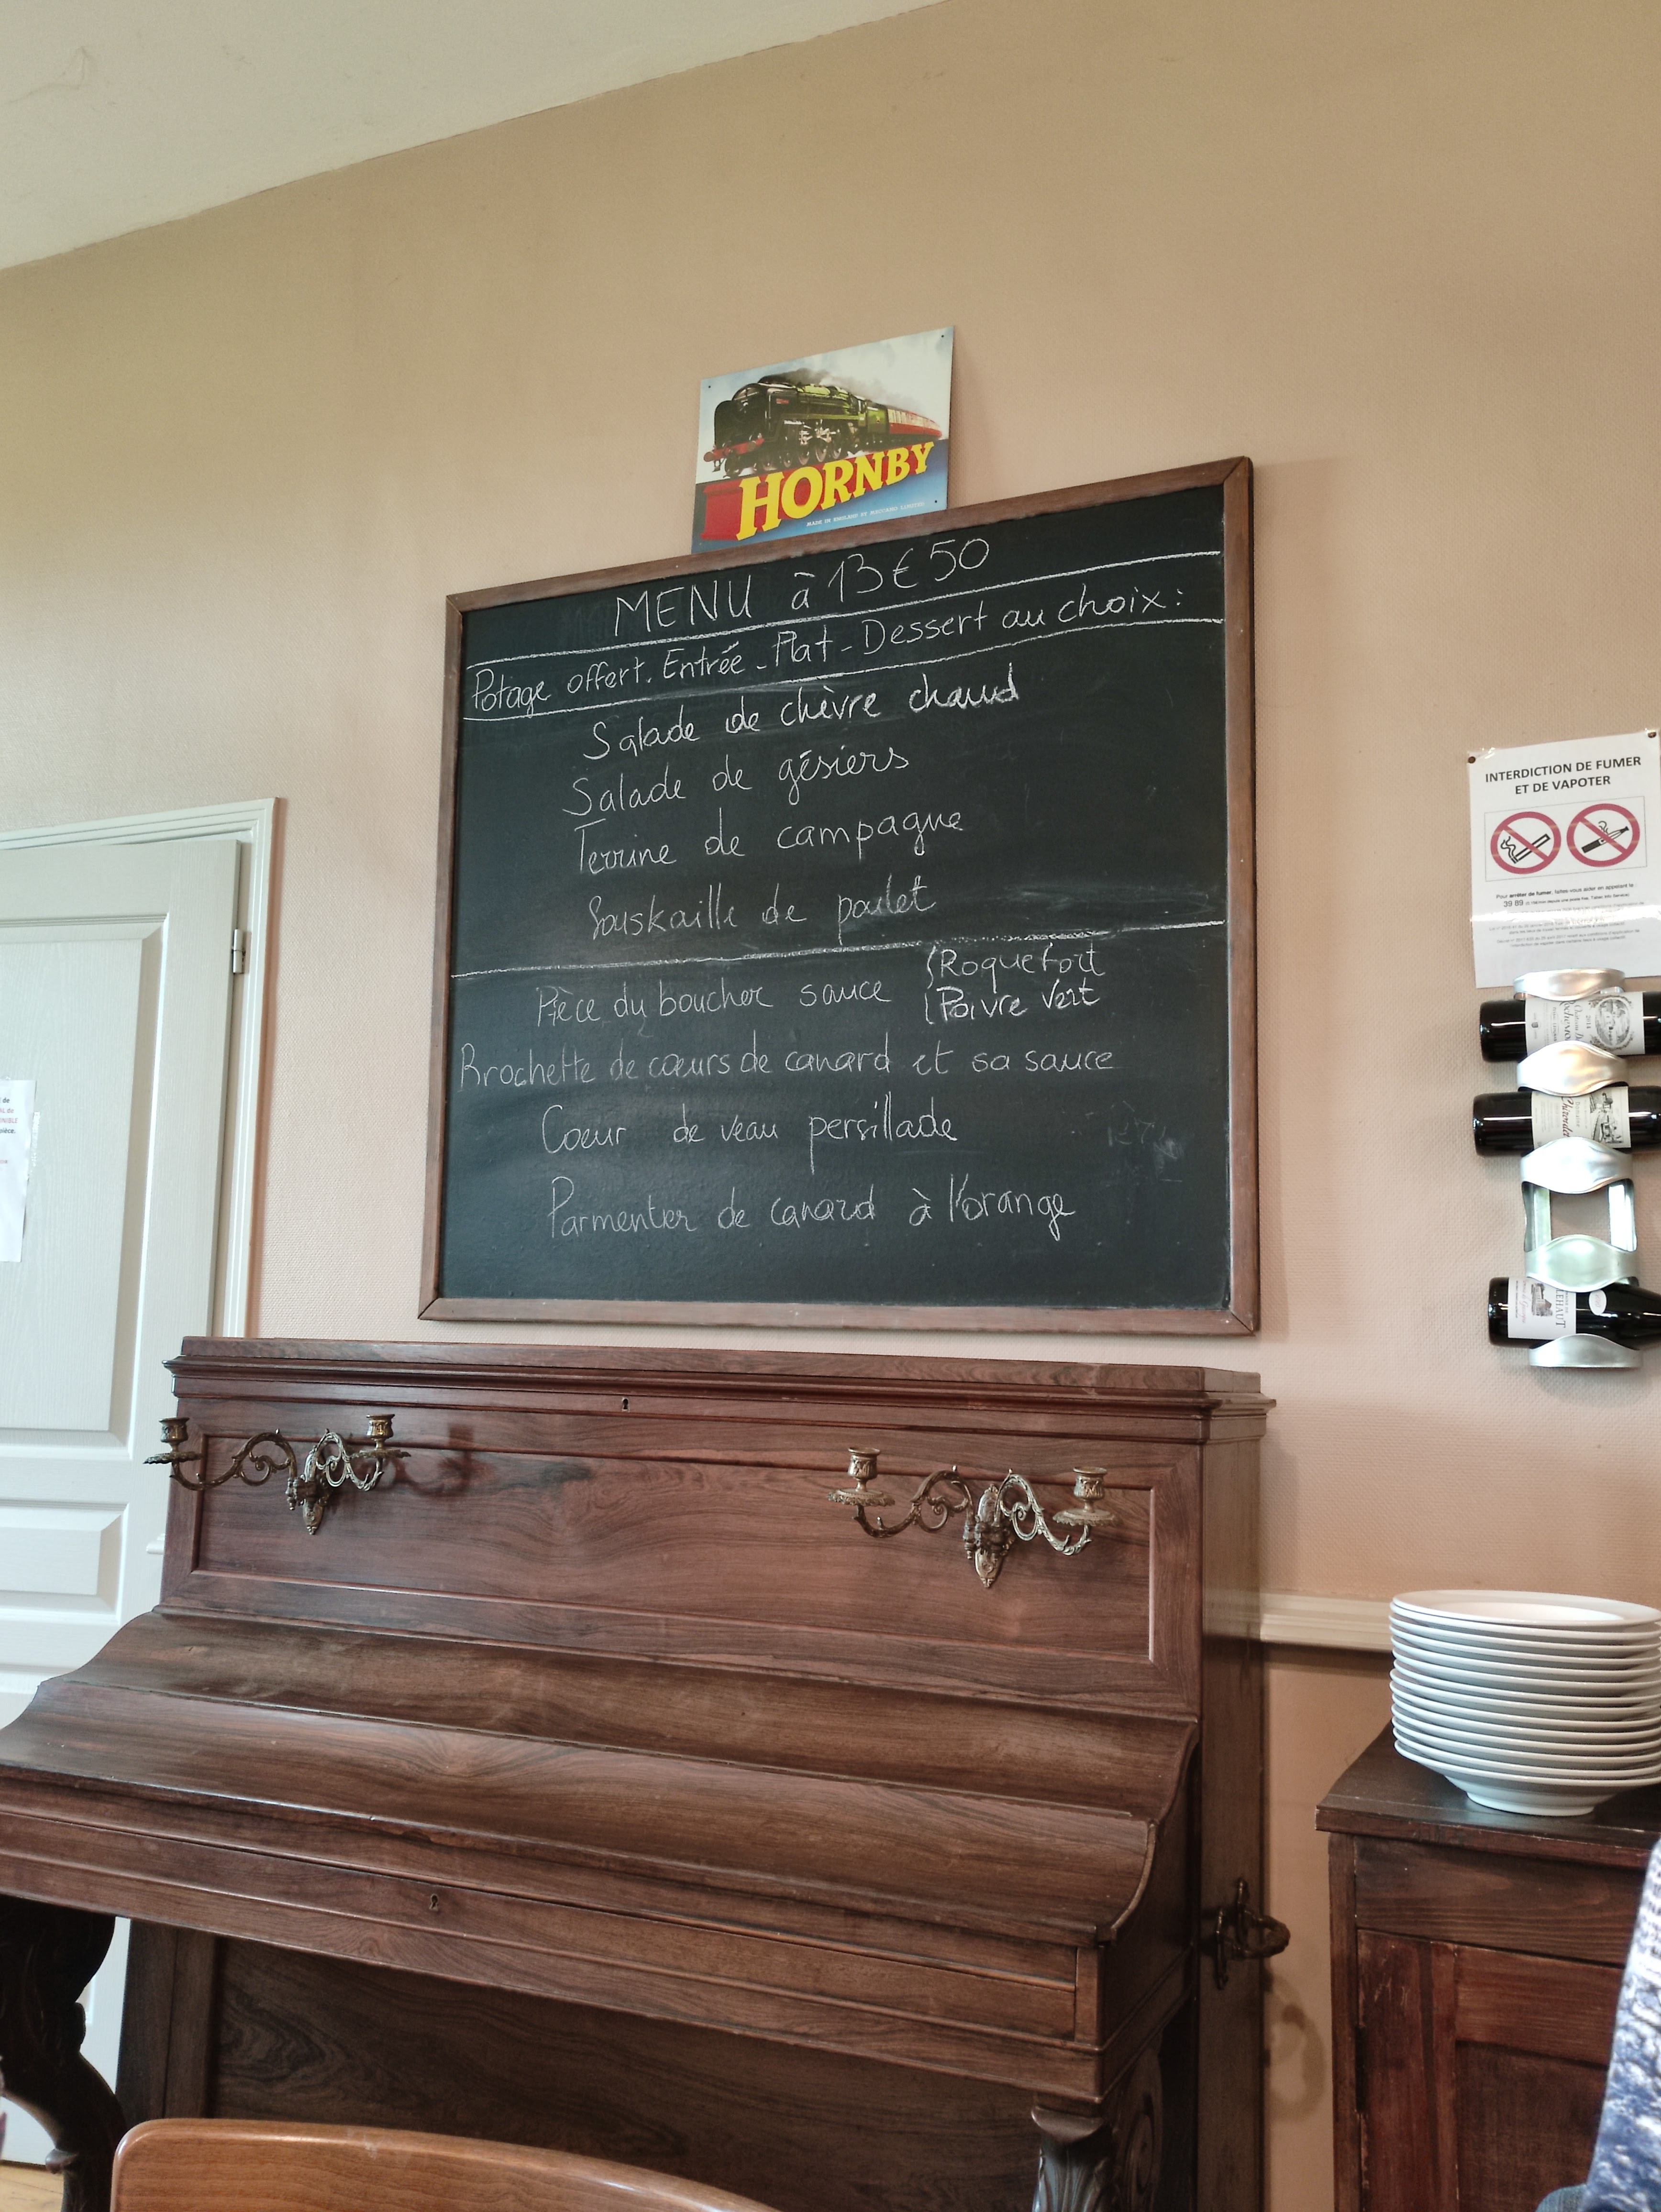 HORNBY
MADE IN ENGLAND BY
MENU à 13€50
Potage offert. Entrée - Plat - Dessert au choix :
Salade de chèvre chaud
Salade de gésiers
Terrine de campagne
Souskaille de poulet
Pièce du boucher sauce { Roquefort
{ Poivre vert
Brochette de cœurs de canard et sa sauce
Coeur de veau persillade
Parmentier de canard à l'orange
INTERDICTION DE FUMER
ET DE VAPOTER
Pour arrêter de fumer, faites-vous aider en appelant le
39 89